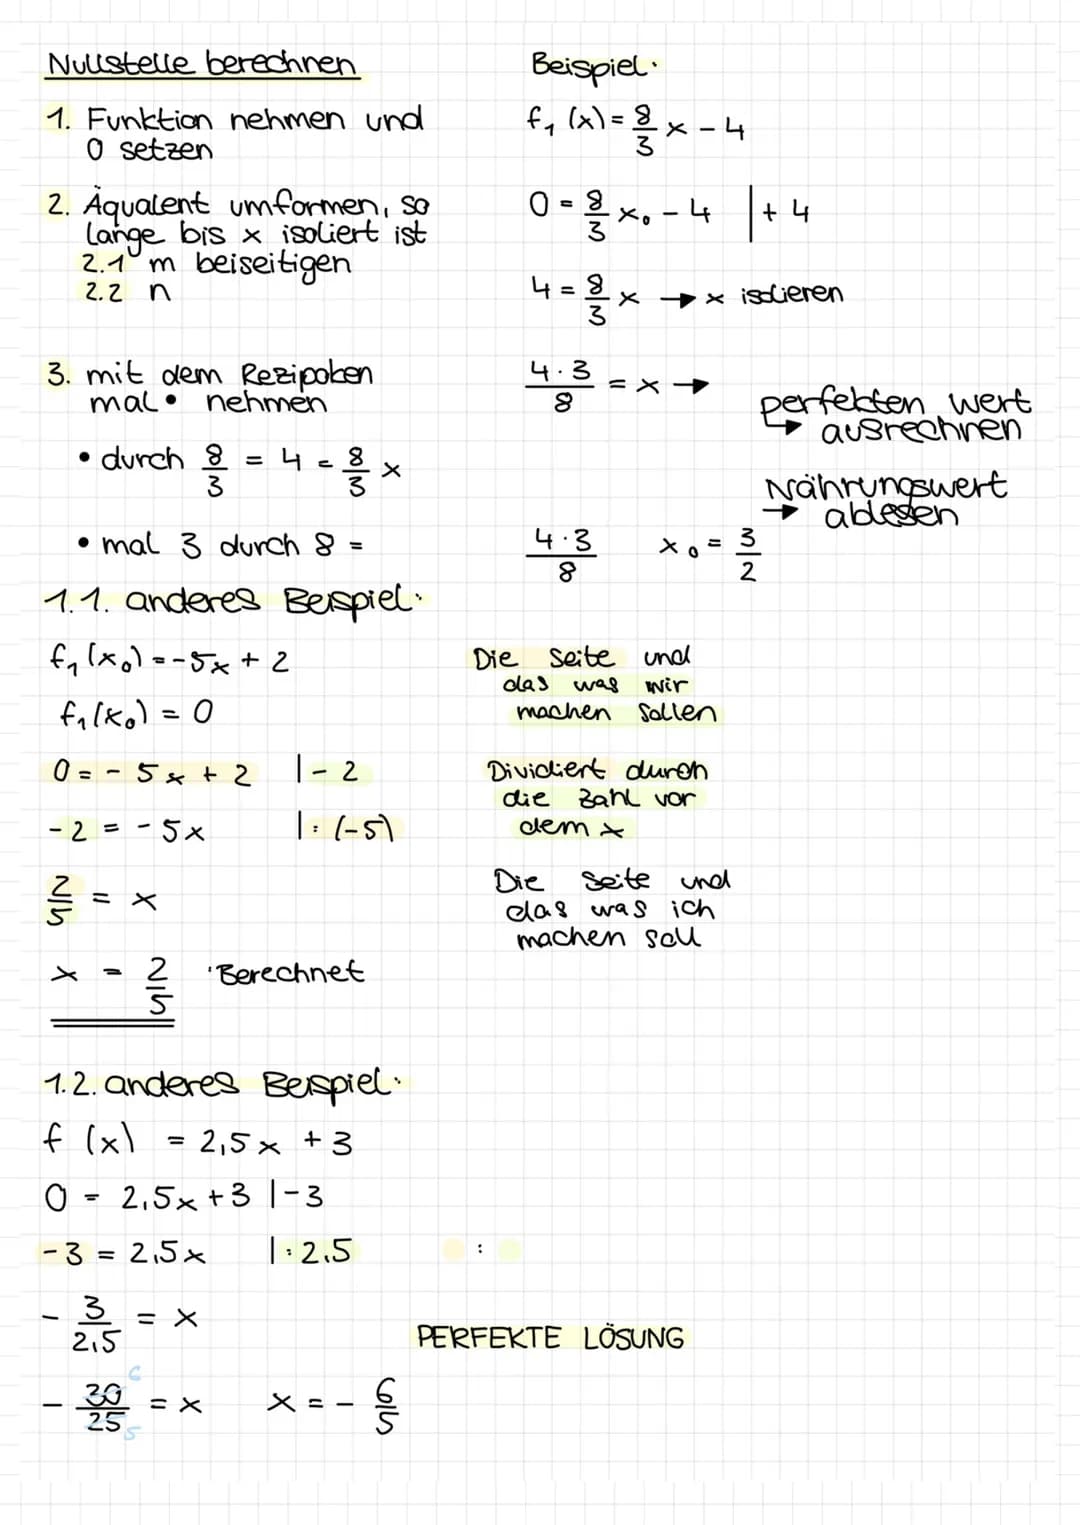 Nullstelle berechnen
Beispiel:
1. Funktion nehmen und
0 setzen
f₁ (x) = 8/3 x - 4
2. Äqualent umformen, so
lange bis x isoliert ist
2.1 m beiseitigen
2.2 n
0 = 8/3 x₀ - 4 | + 4
4 = 8/3 x → x isolieren
3. mit dem Rezipoken
mal • nehmen
4·3/8 = x →
perfekten wert
↳ ausrechnen
Nährungswert
→ ablesen
• durch 8/3 = 4 = 8/3 x
• mal 3 durch 8 =
4·3/8 x₀ = 3/2
1.1. anderes Beispiel:
f₁ (x₀) = -5x + 2
f₁ (x₀) = 0
0 = - 5x + 2 | - 2
-2 = -5x | : (-5)
2/5 = x
x = 2/5 'Berechnet
Die Seite und
das was wir
machen sollen
Dividiert durch
die Zahl vor
dem x
Die Seite und
das was ich
machen soll
1.2. anderes Beispiel:
f (x) = 2,5x + 3
0 = 2,5x + 3 | - 3
-3 = 2,5x | : 2,5
:
- 3/2,5 = x
PERFEKTE LÖSUNG
- 30/25 = x x = - 6/5
6
5